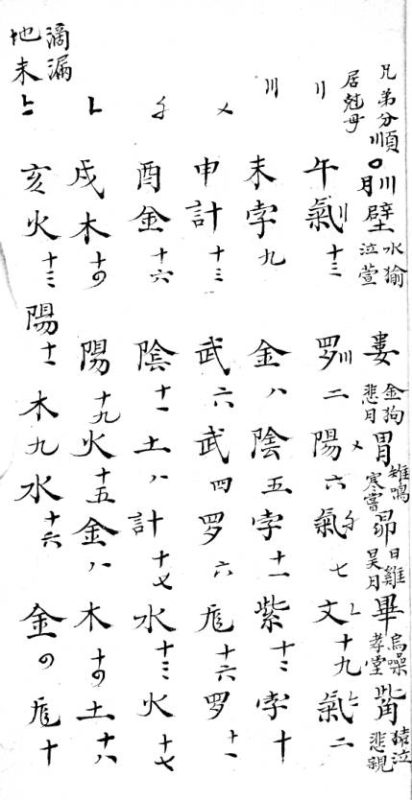 兄弟分順 〇月 川 壁 水㺄 泣萱 婁 金狗 悲月 胃 雉鳴 寒嘗 昴 日雞 昊月 畢 烏噪 孝堂 觜 猿泣 悲親
居尅母
〢 午氣 〣 十三 罗 〣 二 陽 〤 六 氣 〥 七 文 〦 十九 氣 〧 二
〣 未孛九 金八 陰五 孛十一 紫十二 孛十
〤 申計十三 武六 武四 罗六 炁十六 罗十一
〥 酉金十六 陰十一 土八 計十七 水十三 火十七
〦 戌木十の 陽十九 火十五 金八 木十の 土十八
滴漏
地未
〧 亥火十三 陽十一 木九 水十六 金の 炁十